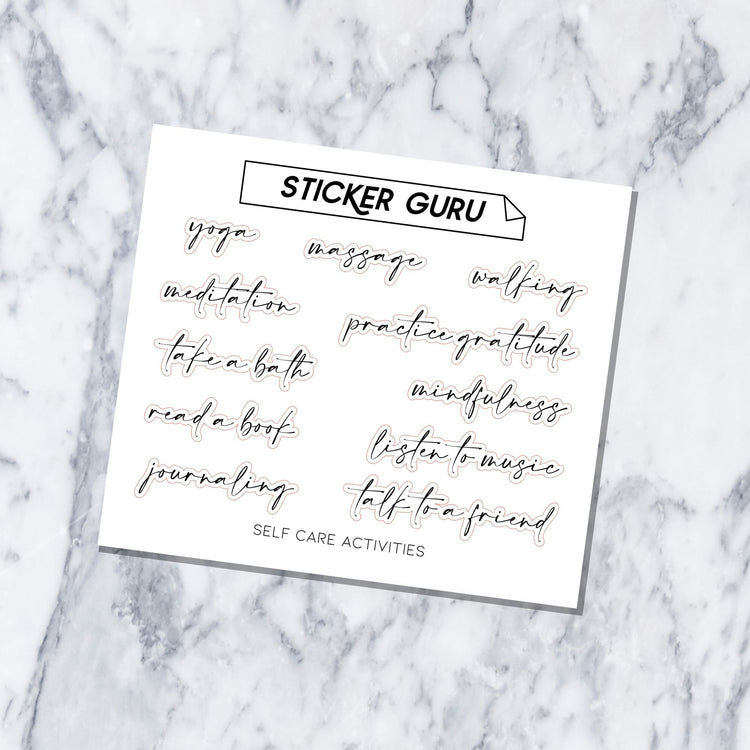 STICKER GURU
yoga
massage
walking
meditation
practice gratitude
take a bath
mindfulness
read a book
listen to music
journaling
talk to a friend
SELF CARE ACTIVITIES